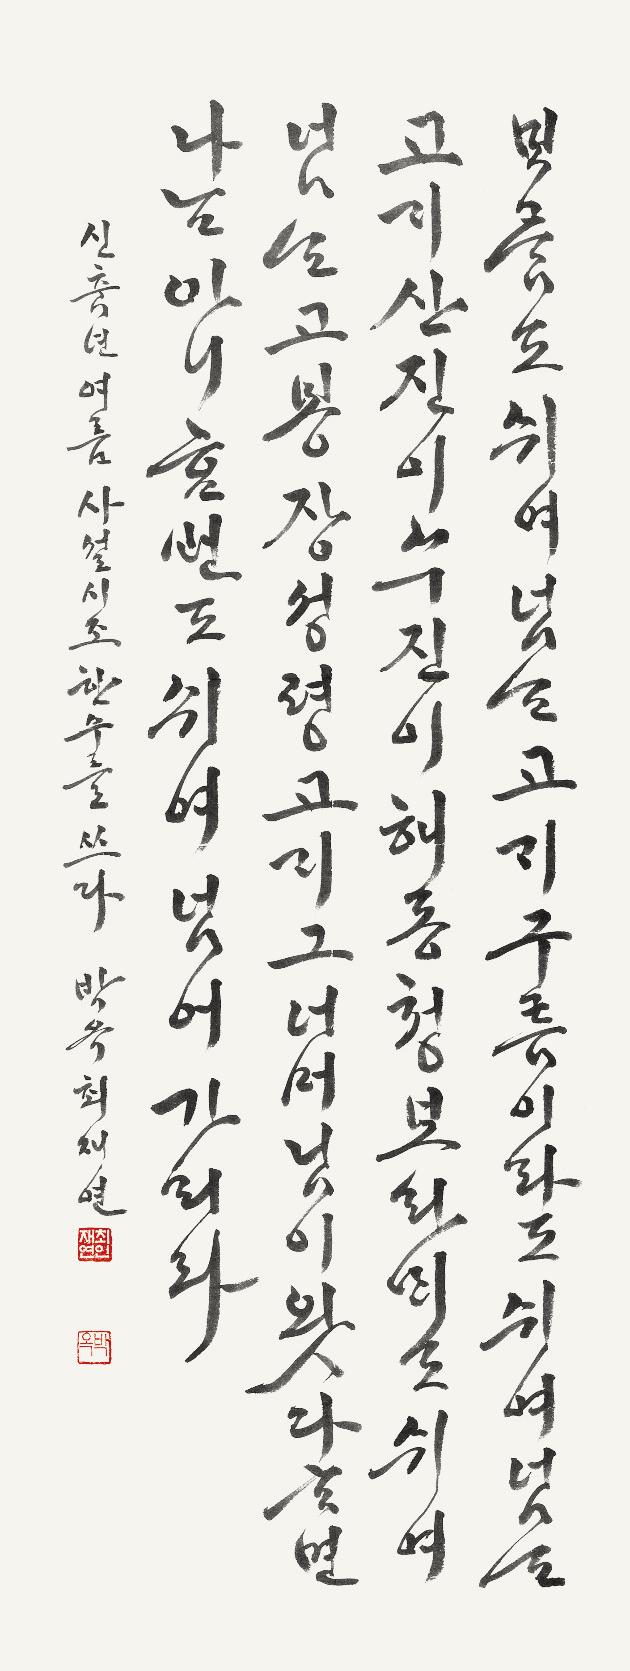 ᄇᆞᄅᆞᆷ도쉬여넘ᄂᆞᆫ고ᄀᆡ구름이라도쉬여넘ᄂᆞᆫ
고ᄀᆡ산진이수진이해동청보라ᄆᆡ도쉬여
넘ᄂᆞᆫ고봉장성령고ᄀᆡ그너머님이왓다ᄒᆞ면
나ᄂᆞᆫ아니ᄒᆞᆫ번도쉬여넘어가리라
신축년여름사설시조한수를쓰다 박옥최재연
최인재연
박옥